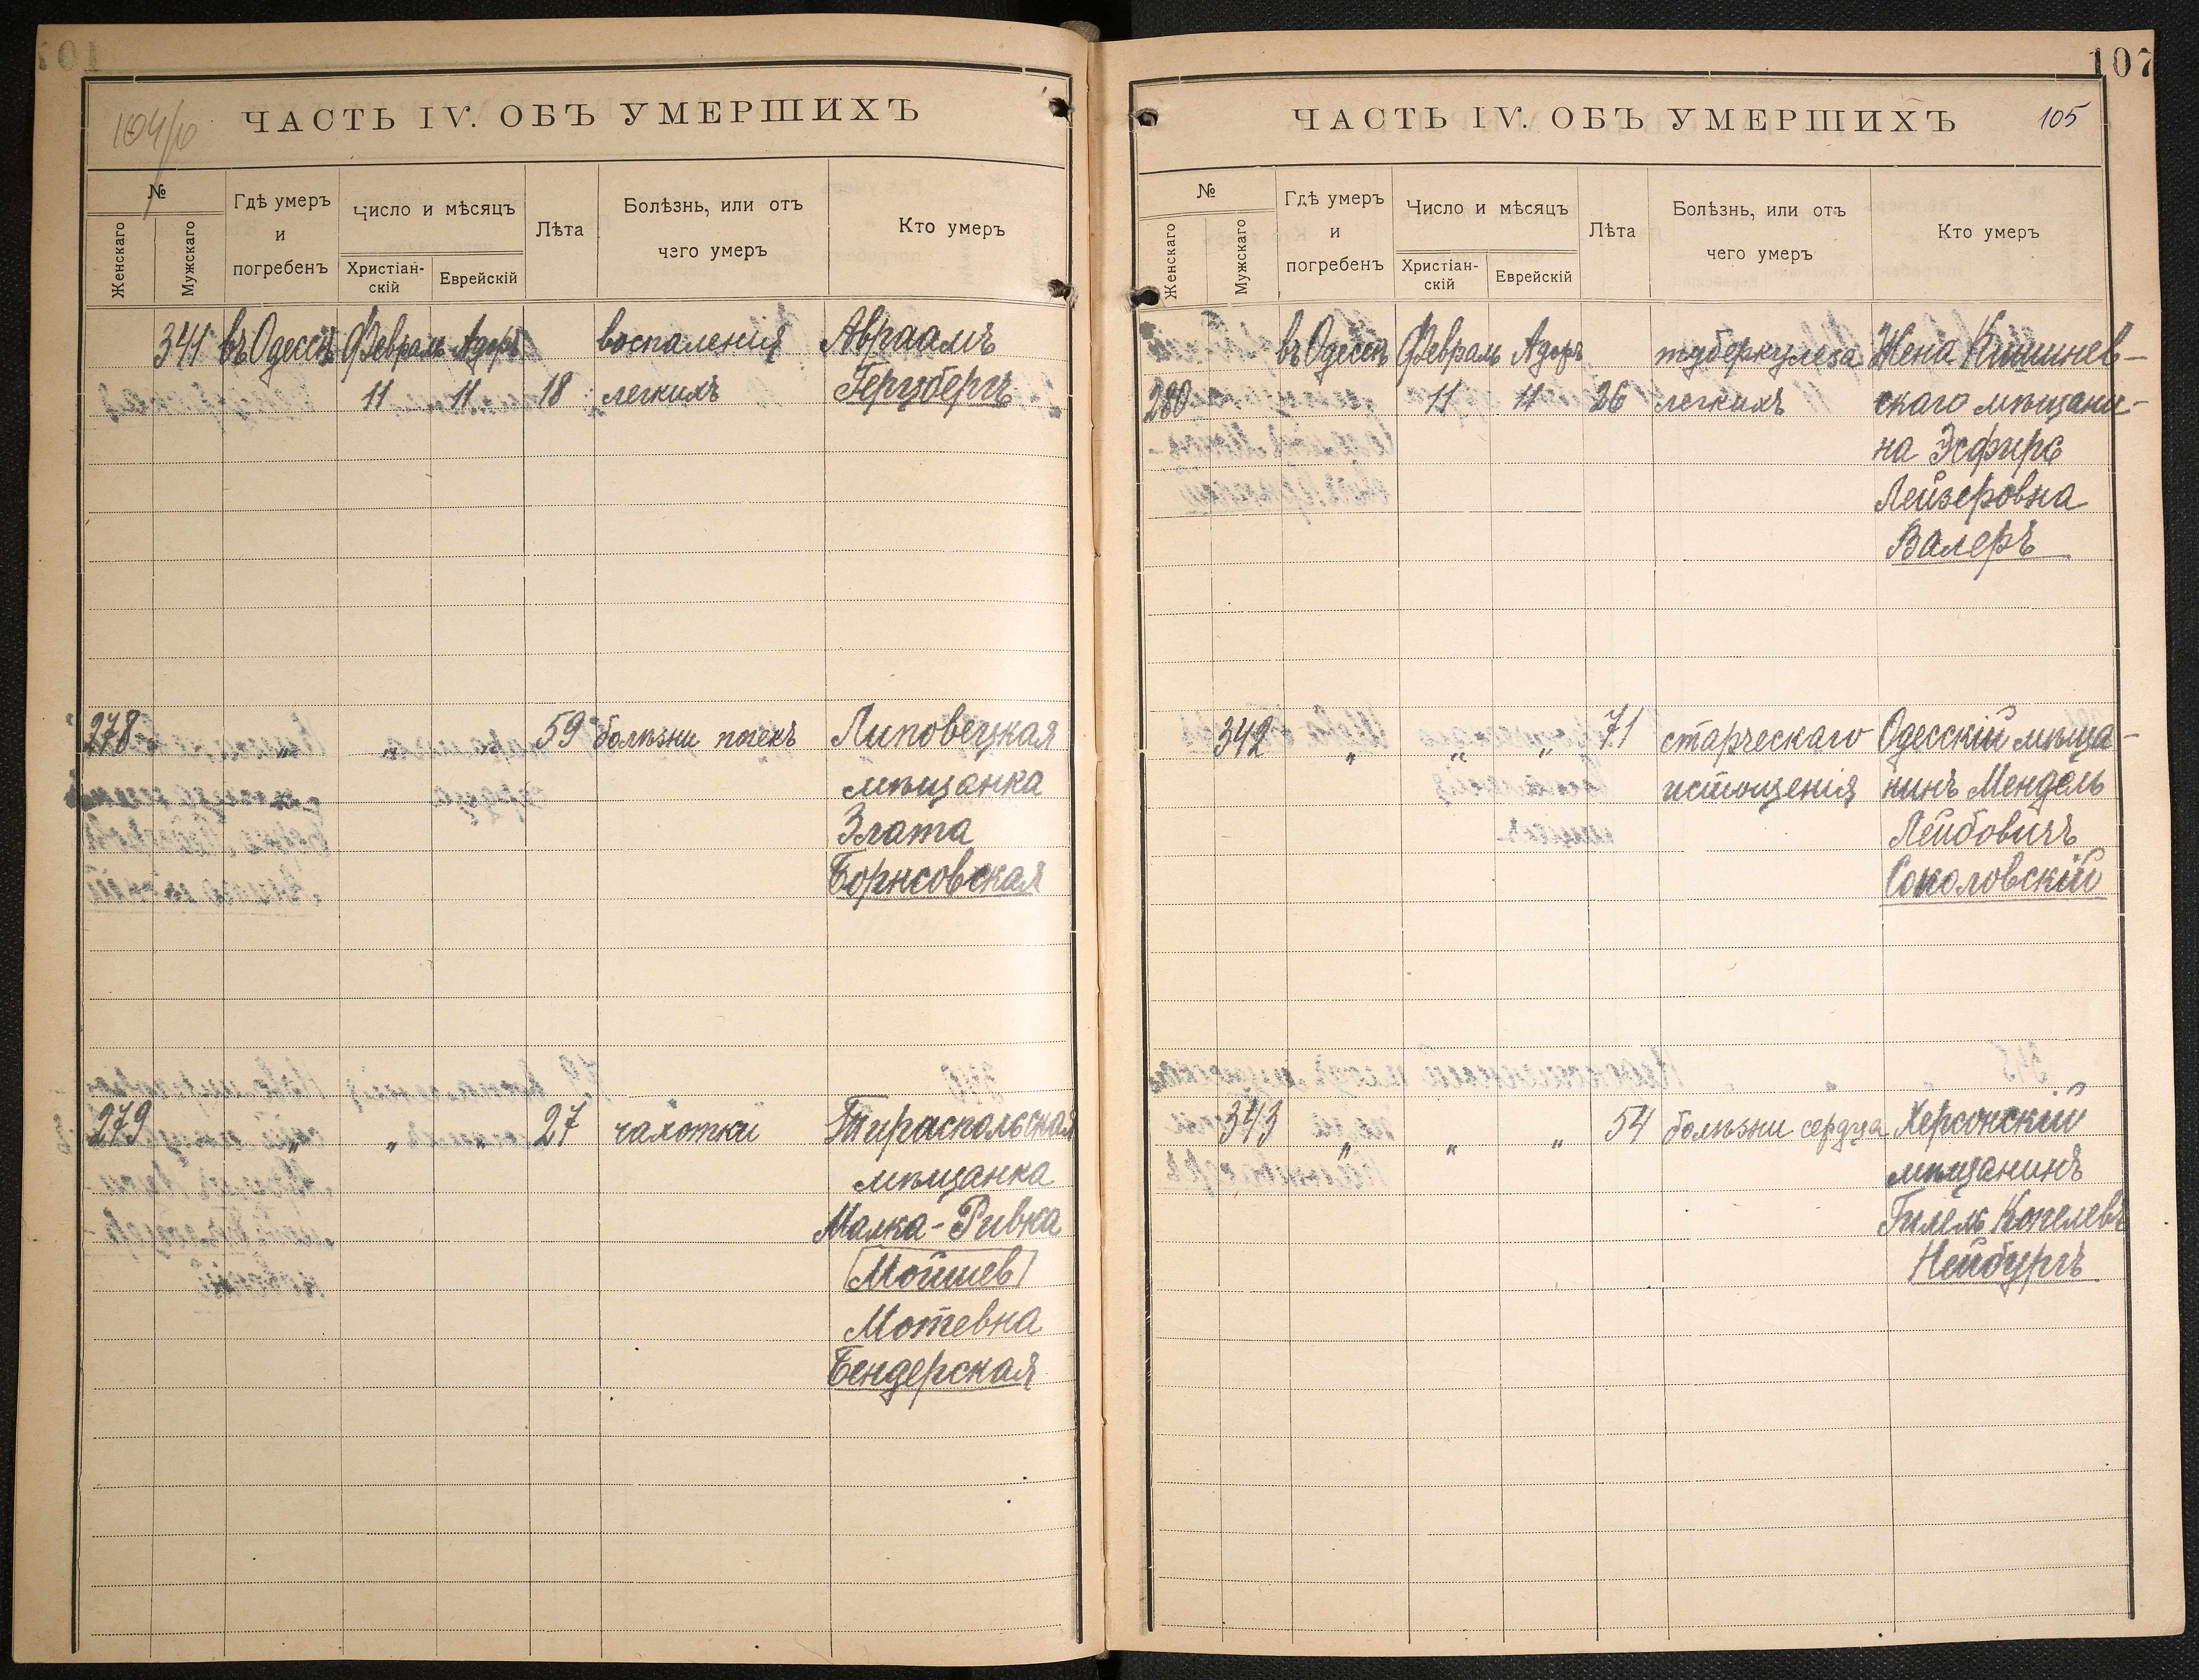 104/б
ЧАСТЬ IV. ОБЪ УМЕРШИХЪ
№
Женскаго
Мужскаго
Гдѣ умеръ
и
погребенъ
Число и мѣсяцъ
Христіан-
скій
Еврейскій
Лѣта
Болѣзнь, или отъ
чего умеръ
Кто умеръ
341 въ Одессѣ Февраль Адоръ воспаленія Авраамъ
11 11 18 легкихъ Герцбергъ
278 „ „ 59 болѣзни почекъ Липовецкая
мѣщанка
Злата
Борисовская
279 „ „ „ 27 чахотки Тираспольская
мѣщанка
Малка-Ривка
(Мойшев)
Мотевна
Бендерская
107
ЧАСТЬ IV. ОБЪ УМЕРШИХЪ
105
№
Женскаго
Мужскаго
Гдѣ умеръ
и
погребенъ
Число и мѣсяцъ
Христіан-
скій
Еврейскій
Лѣта
Болѣзнь, или отъ
чего умеръ
Кто умеръ
въ Одессѣ Февраль Адоръ туберкулеза Жена Кишинев-
280 11 11 26 легкихъ скаго мѣщани-
на Эсфирь
Лейзеровна
Валеръ
342 „ „ „ 71 старческаго Одесскій мѣща-
истощенія нинъ Мендель
Лейбовичъ
Соколовскій
343 „ „ „ 54 болѣзни сердца Херсонскій
мѣщанинъ
Гилель Копелевъ
Нейбургъ